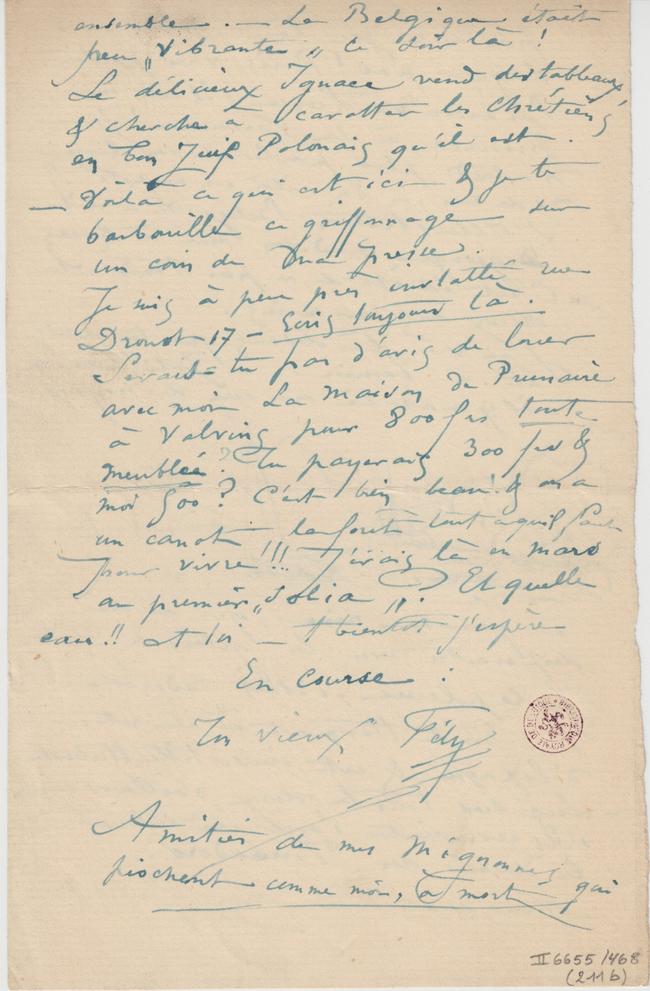 ensemble. — La Belgique était
peu „Vibrante„ ce soir là !
Le délicieux Ignace vend des tableaux
& cherche à carotter les chrétiens
en bon Juif Polonais qu'il est.
— Voilà ce qui est ici & je te
barbouille ce griffonnage sur
un coin de ma presse.
Je suis à peu près installé rue
Drouot 17 – Ecris toujours là.
Serais-tu pas d'avis de louer
avec moi La maison de Prunaire
à Valvins pour 800 frs toute
meublée ? Tu payerais 300 frs &
moi 500 ? C'est bien beau! & on a
un canot la forêt tout ce qu'il faut
pour vivre !!! J'irais là en mars
au premier „Solia„ ! Et quelle
eau !! et toi — A bientôt j'espère
En course :
Ton vieux, Fély
Amitiés de mes Mignonnes qui
piochent comme moi, à mort
BIBLIOTHEQUE ROYALE DE BELGIQUE
II 6655/468
(211b)